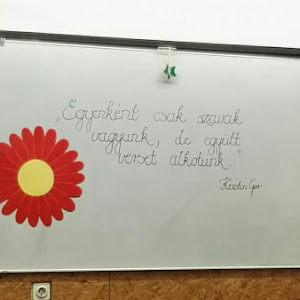 „Egyenként csak szavak
vagyunk, de együtt
verset alkotunk..."
Kerstin Gier